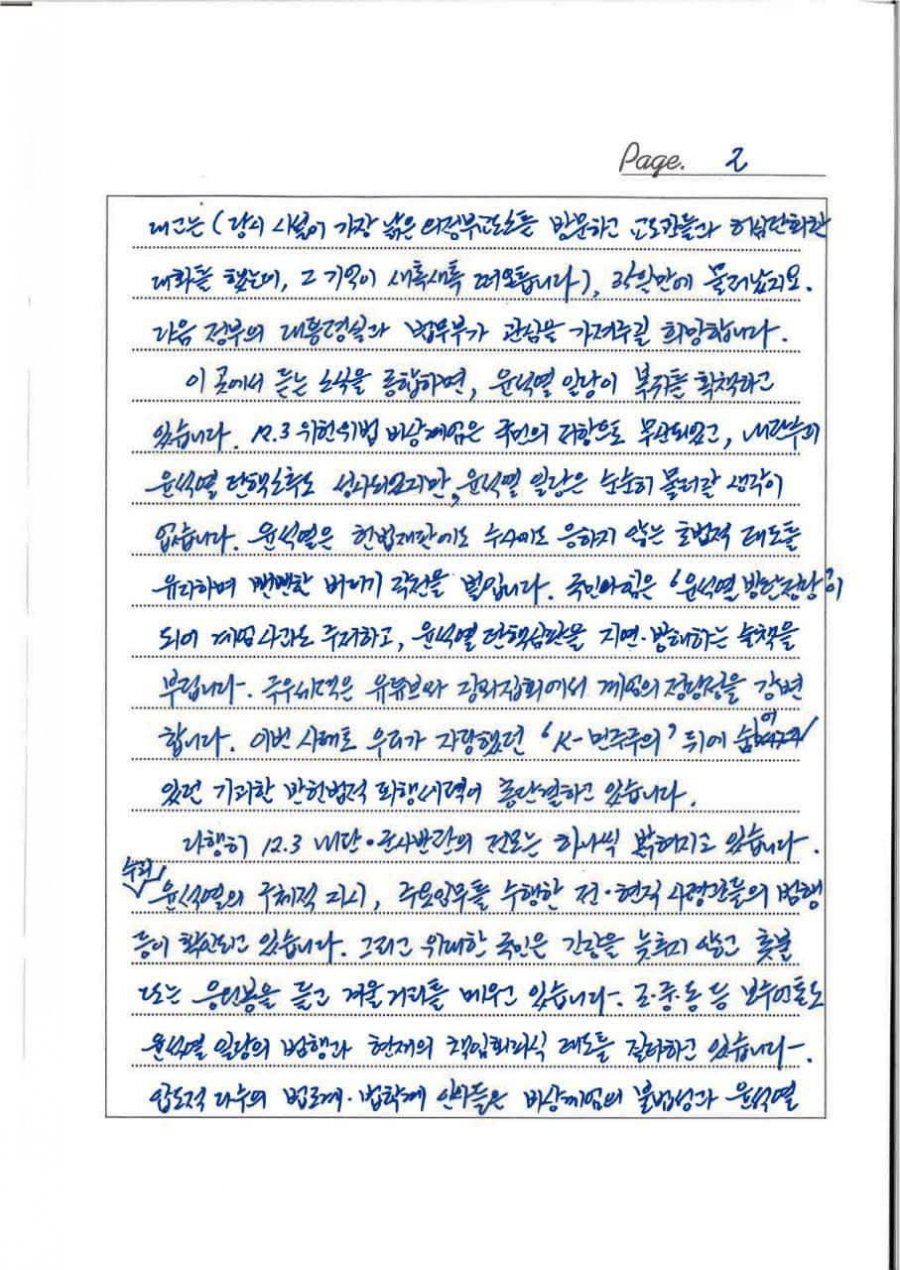 Page. 2
내고는 (당시 시설이 가장 낡은 의정부교도소를 방문하고 교도관들과 허심탄회한
대화를 했는데, 그 기억이 새록새록 떠오릅니다), 35일만에 물러났지요.
다음 정부의 대통령실과 법무부가 관심을 가져주길 희망합니다.
이 곳에서 듣는 소식을 종합하면, 윤석열 일당이 복귀를 획책하고
있습니다. 12.3 위헌위법 비상계엄은 국민의 저항으로 무산되었고, 내란수괴
윤석열 탄핵소추도 성사되었지만, 윤석열 일당은 순순히 물러날 생각이
없습니다. 윤석열은 헌법재판에도 수사에도 응하지 않는 호법적 태도를
유지하며 뻔뻔한 버티기 작전을 벌입니다. 국민의힘은 '윤석열 방탄정당'이
되어 계엄사과도 주저하고, 윤석열 탄핵심판을 지연·방해하는 술책을
부립니다. 극우세력은 유튜브와 광화집회에서 계엄의 정당성을 강변
합니다. 이번 사태로 우리가 자랑했던 'K-민주주의' 뒤에 숨어
있던 기괴한 반헌법적 퇴행세력이 총단결하고 있습니다.
다행히 12.3 내란·군사반란의 전모는 하나씩 밝혀지고 있습니다.
수괴
윤석열의 구체적 지시, 주요임무를 수행한 전·현직 사령관들의 범행
등이 확인되고 있습니다. 그리고 위대한 국민은 긴장을 늦추지 않고 촛불
또는 응원봉을 들고 겨울 거리를 메우고 있습니다. 조·중·동 등 보수언론도
윤석열 일당의 범행과 현재의 책임회피식 태도를 질타하고 있습니다.
압도적 다수의 법조계·법학계 인사들은 비상계엄의 불법성과 윤석열